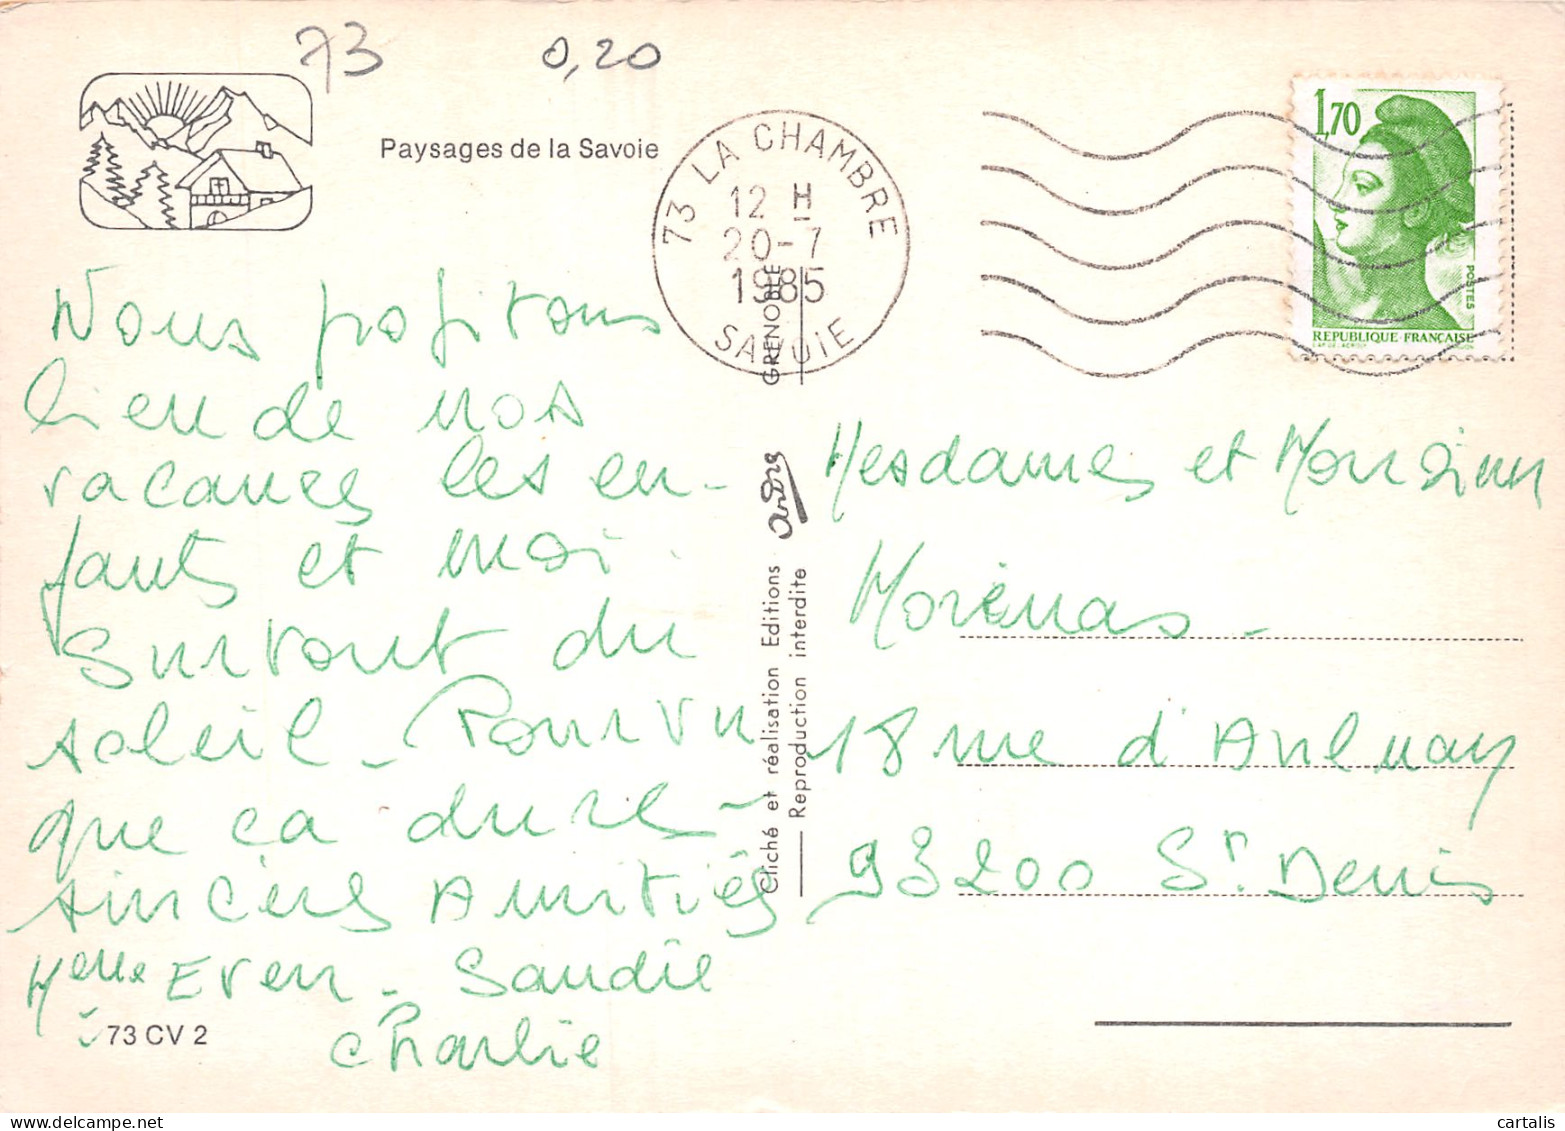 73 0,20
Paysages de la Savoie
73 LA CHAMBRE
12 H
20-7
1985
SAVOIE
1,70
POSTES
REPUBLIQUE FRANÇAISE
Nous profitons
bien de nos
vacances les en-
fants et moi.
Surtout du
soleil. Pourvu
que ça dure -
sincères Amitiés
Melle Even - Sandie
Charlie
73 CV 2
Cliché et réalisation Editions André GRENOBLE
Reproduction interdite
Mesdames et Monsieur
Morénas -
18 rue d'Aulnay
93200 St. Denis
cartalis
https://www.delcampe.net